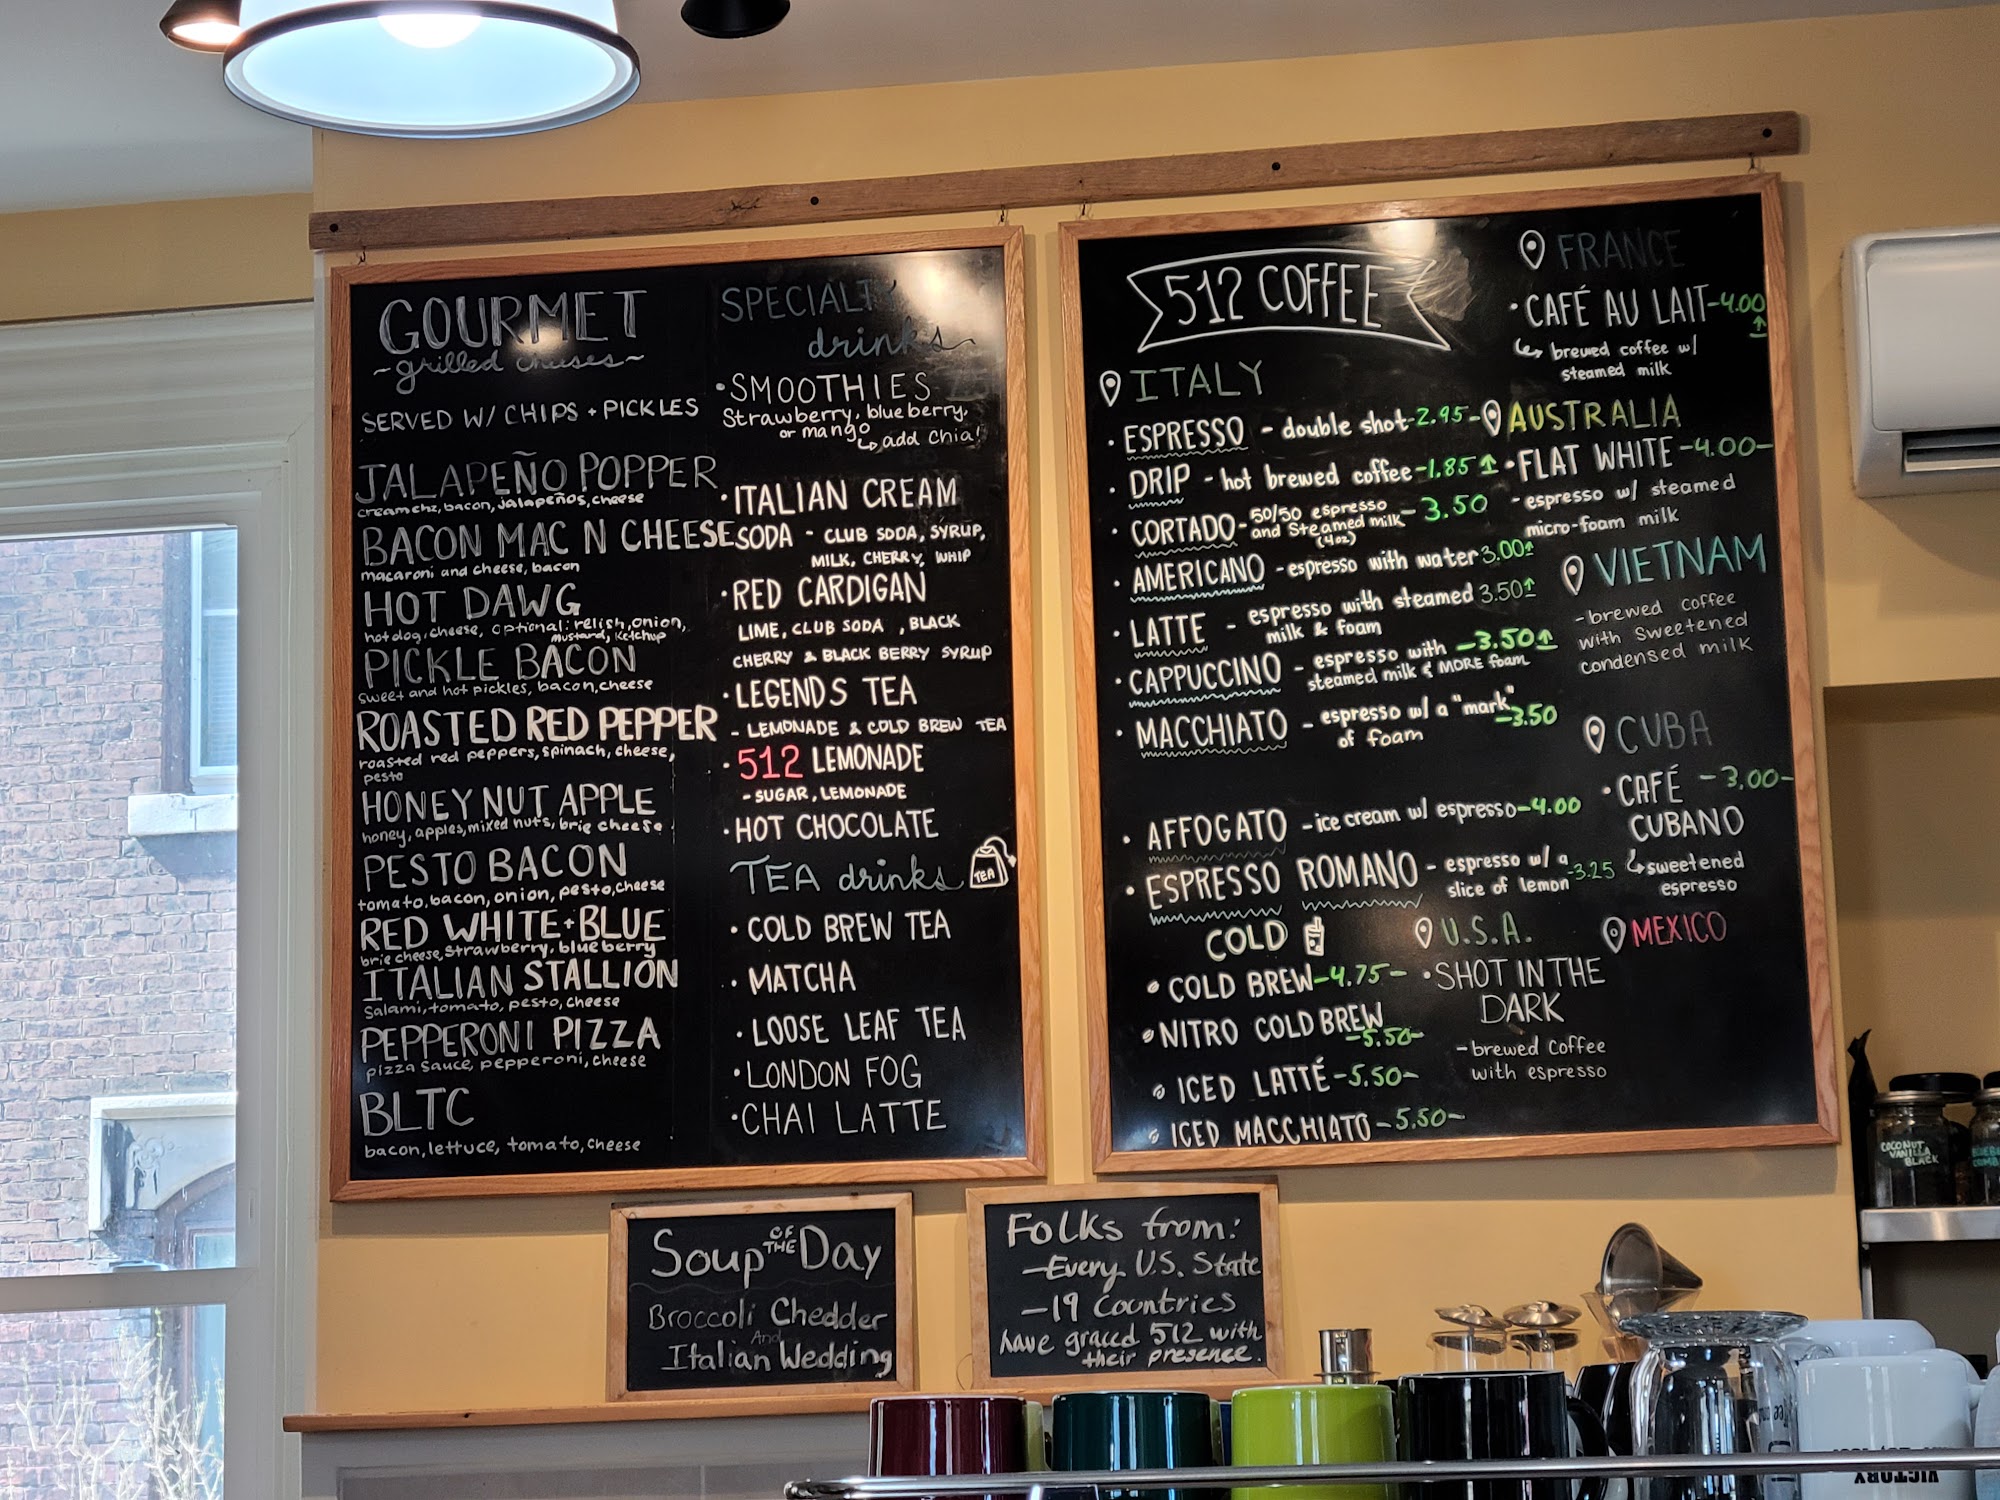 GOURMET
~grilled cheeses~
SERVED W/ CHIPS + PICKLES
JALAPEÑO POPPER
cream chz, bacon, jalapeños, cheese
BACON MAC N CHEESE
macaroni and cheese, bacon
HOT DAWG
hotdog, cheese, optional: relish, onion,
mustard, ketchup
PICKLE BACON
sweet and hot pickles, bacon, cheese
ROASTED RED PEPPER
roasted red peppers, spinach, cheese,
pesto
HONEY NUT APPLE
honey, apples, mixed nuts, brie cheese
PESTO BACON
tomato, bacon, onion, pesto, cheese
RED WHITE + BLUE
brie cheese, strawberry, blueberry
ITALIAN STALLION
Salami, tomato, pesto, cheese
PEPPERONI PIZZA
pizza sauce, pepperoni, cheese
BLTC
bacon, lettuce, tomato, cheese
SPECIALTY
drinks
• SMOOTHIES
Strawberry, blueberry,
or mango
add chia!
• ITALIAN CREAM
SODA - CLUB SODA, SYRUP,
MILK, CHERRY, WHIP
• RED CARDIGAN
LIME, CLUB SODA, BLACK
CHERRY & BLACK BERRY SYRUP
• LEGENDS TEA
- LEMONADE & COLD BREW TEA
• 512 LEMONADE
- SUGAR, LEMONADE
• HOT CHOCOLATE
TEA drinks
TEA
• COLD BREW TEA
• MATCHA
• LOOSE LEAF TEA
• LONDON FOG
• CHAI LATTE
512 COFFEE
ITALY
• ESPRESSO - double shot -2.95-
• DRIP - hot brewed coffee -1.85↑
• CORTADO - 50/50 espresso
and Steamed milk - 3.50
(4oz)
• AMERICANO - espresso with water 3.00↑
• LATTE - espresso with steamed 3.50↑
milk & foam
• CAPPUCCINO - espresso with -3.50↑
steamed milk & MORE foam
• MACCHIATO - espresso w/ a "mark"
of foam -3.50
• AFFOGATO - ice cream w/ espresso -4.00
• ESPRESSO ROMANO - espresso w/ a
slice of lemon -3.25
COLD
COLD BREW -4.75-
NITRO COLD BREW
-5.50-
ICED LATTÉ -5.50-
ICED MACCHIATO -5.50-
FRANCE
• CAFÉ AU LAIT -4.00↑
↳ brewed coffee w/
steamed milk
AUSTRALIA
• FLAT WHITE -4.00-
- espresso w/ steamed
micro-foam milk
VIETNAM
- brewed coffee
with sweetened
condensed milk
CUBA
• CAFÉ -3.00-
CUBANO
↳ sweetened
espresso
U.S.A.
• SHOT IN THE
DARK
- brewed coffee
with espresso
MEXICO
Soup OF THE Day
Broccoli Chedder
And
Italian Wedding
Folks from:
- Every U.S. State
- 19 Countries
have graced 512 with
their presence.
COCONUT
VANILLA
BLACK
VICTORY